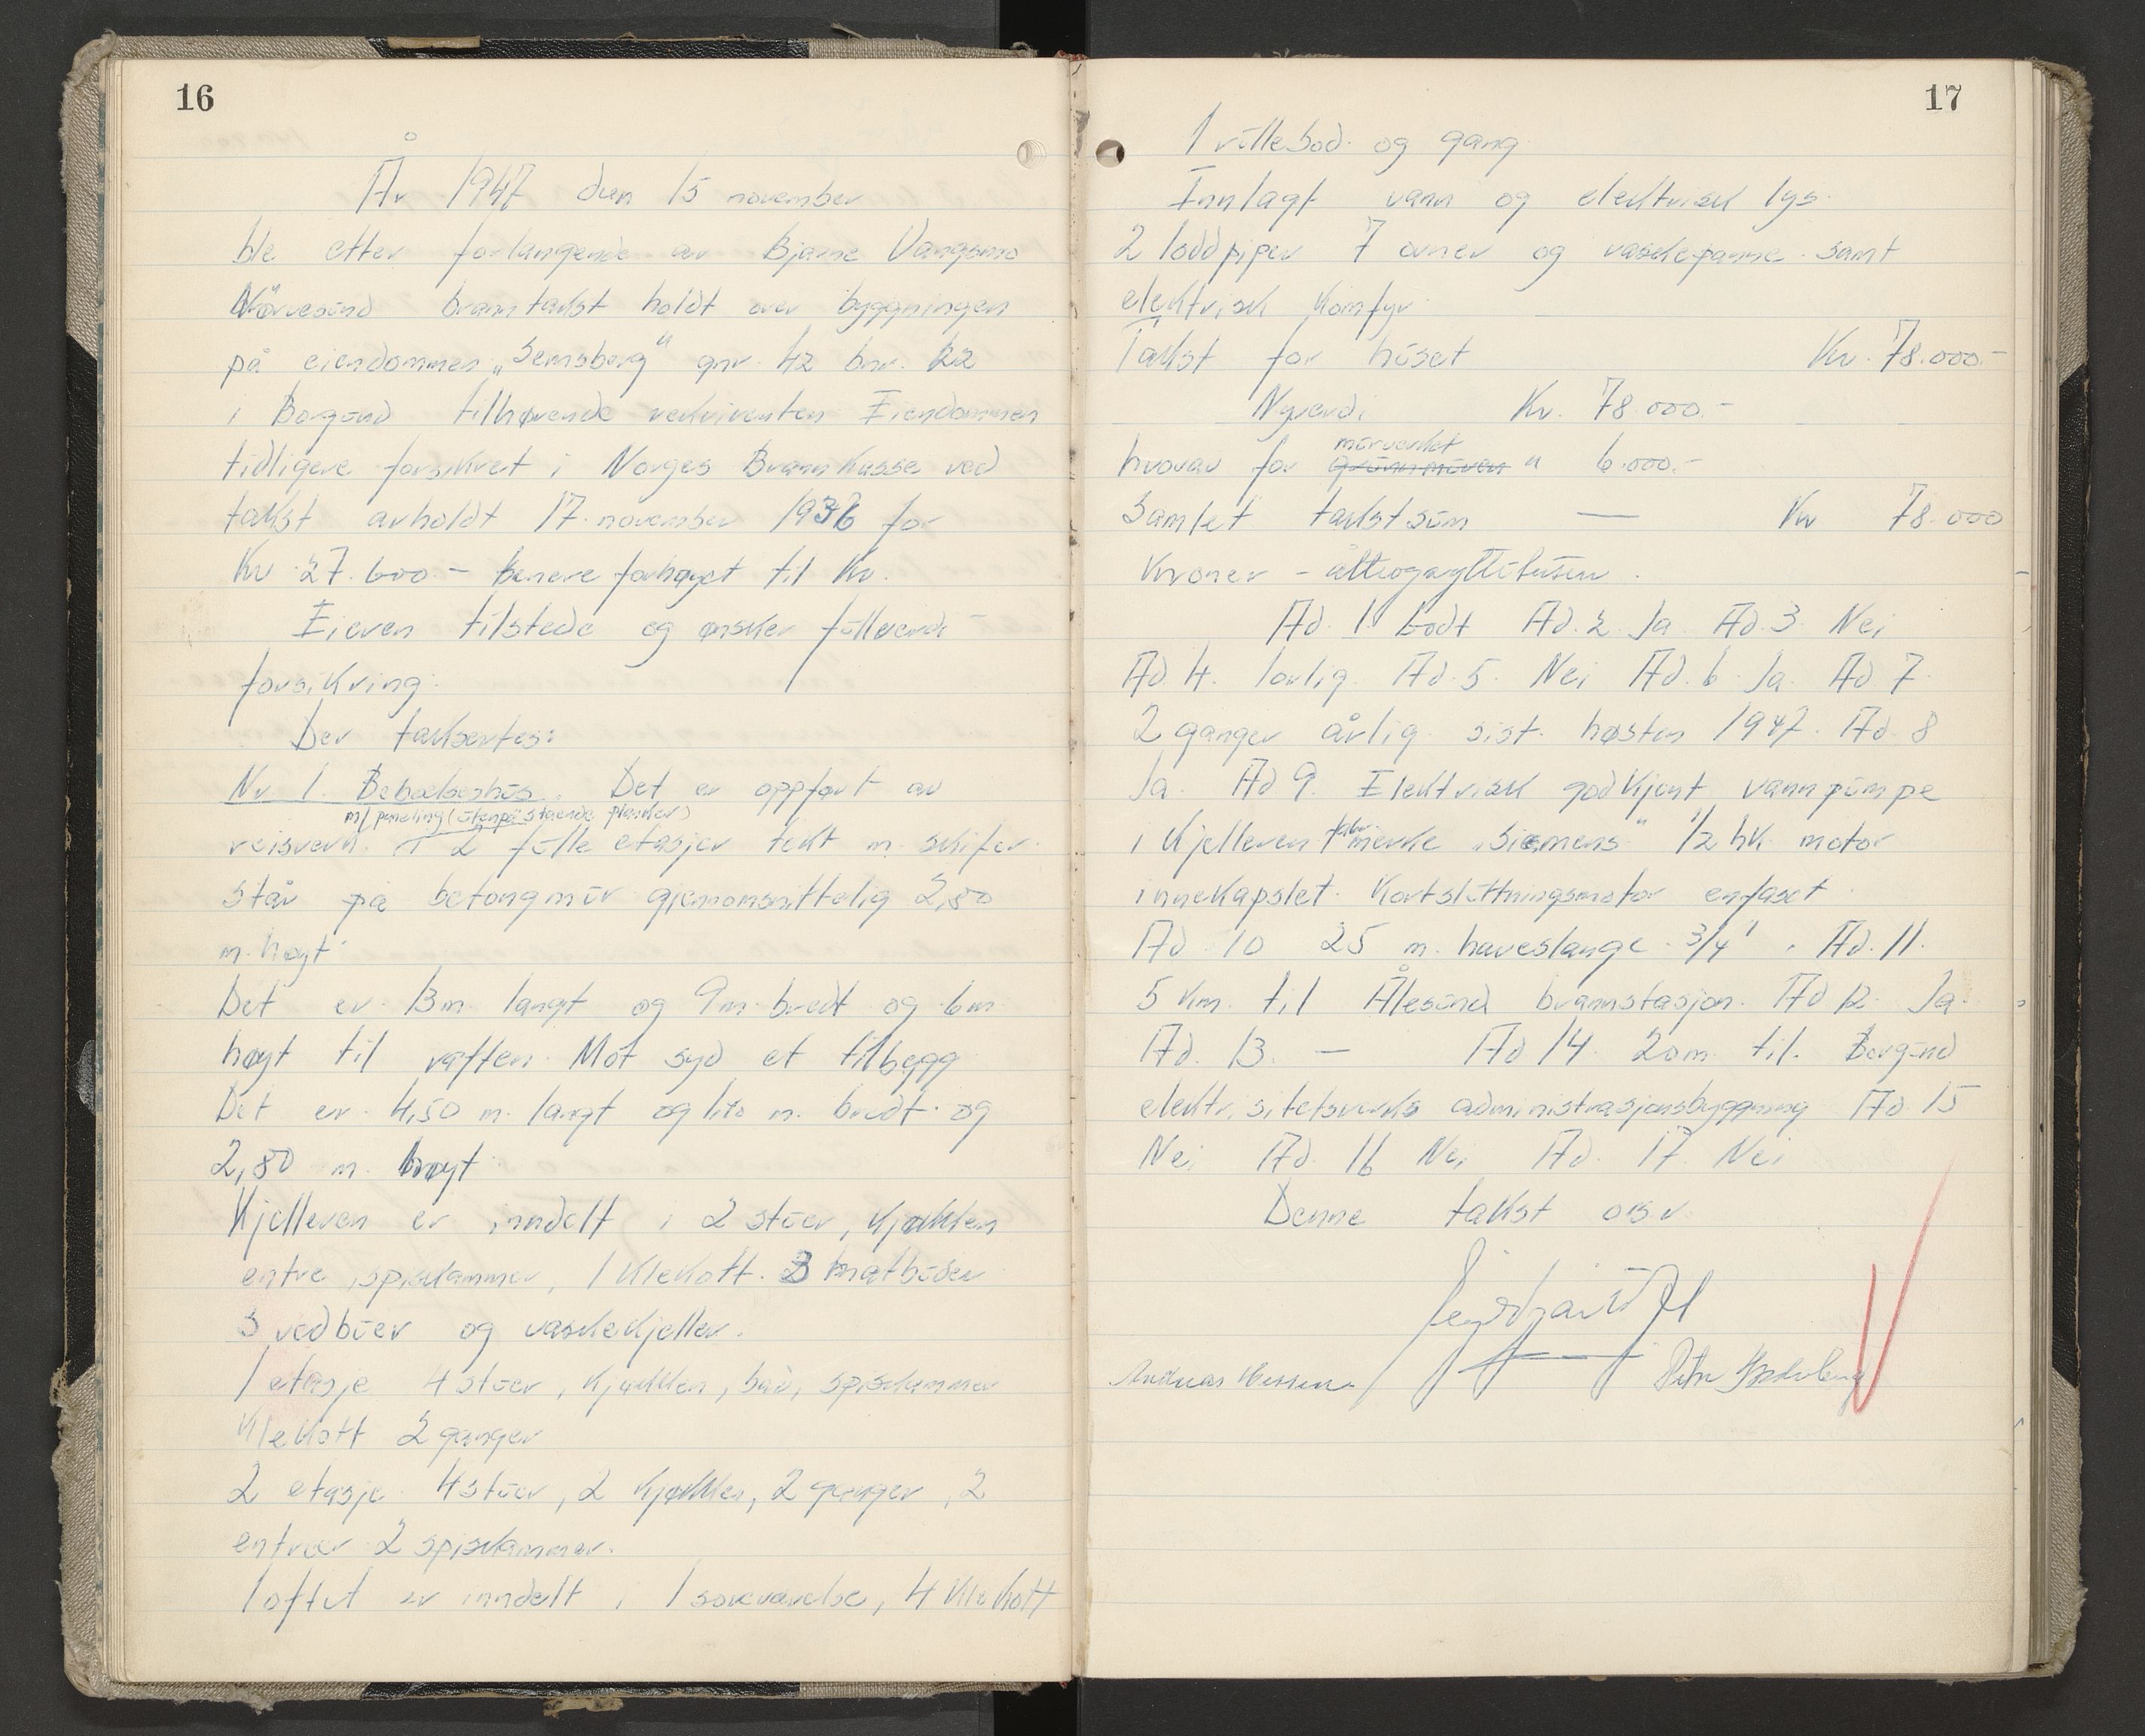 16
År 1947 den 15 november
ble etter forlangende av Bjarne Vangsmo
Nørvesund branntakst holdt over byggningen
på eiendommen „Semsborg" gnr. 42 bnr. 22
i Borgund tilhørende rekvirenten Eiendommen
tidligere forsikret i Norges Brannkasse ved
takst avholdt 17. november 1936 for
Kr 27.600.- senere forhøyet til Kr.
Eieren tilstede og ønsker fullverdi-
forsikring.
Der taksertes:
Nr 1. Beboelseshus. Det er oppført av
m/ paneling (utenpå stående planker)
reisverk i 2 fulle etasjer tekt m. skifer.
står på betongmur gjennomsnittelig 2,80
m. høyt.
Det er 13m langt og 9m. bredt og 6m
høyt til raften. Mot syd et tilbygg
Det er 4,50 m. langt og 1,40 m. bredt. og
2,80 m. høyt
Kjelleren er inndelt i 2 stuer, kjøkken
entre, spiskammer, 1 klekott. 3 matboder
3 vedbuer og vaskekjeller.
1 etasje 4 stuer, kjøkken, bad, spiskammer
klekott 2 ganger
2 etasje 4 stuer, 2 kjøkken, 2 ganger, 2
entreer 2 spiskammer.
loftet er inndelt i 1 soveværelse, 4 klekott
17
1 rullebod. og gang.
Innlagt vann og elektrisk lys.
2 loddpiper 7 ovner og vaskepanne. samt
elektrisk komfyr.
Takst for huset Kr. 78.000.-
Nyverdi Kr. 78.000.-
murverket
hvorav for grunnmuren " 6.000.-
Samlet takstsum — Kr 78.000
kroner - åtteogsyttitusen.
Ad. 1. Godt Ad. 2 Ja Ad. 3. Nei
Ad 4. lovlig. Ad. 5. Nei Ad. 6. Ja. Ad 7.
2 ganger årlig. sist. høsten 1947. Ad 8
Ja. Ad 9. Elektrisk godkjent vannpumpe
i kjelleren fabr. merke „Siemens" 1/2 hk. motor
innekapslet. Kortslutningsmotor enfaset.
Ad 10 25 m. haveslange 3/4". Ad. 11.
5 km. til Ålesund brannstasjon. Ad 12. Ja.
Ad. 13. — Ad 14 20m. til. Borgund
elektrisitetsverks administrasjonsbyggning Ad 15
Nei Ad 16 Nei Ad. 17. Nei
Denne takst osv.
Andreas Petter